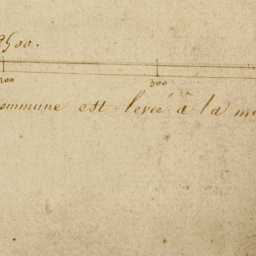 2500.
200 300
commune est levée à la